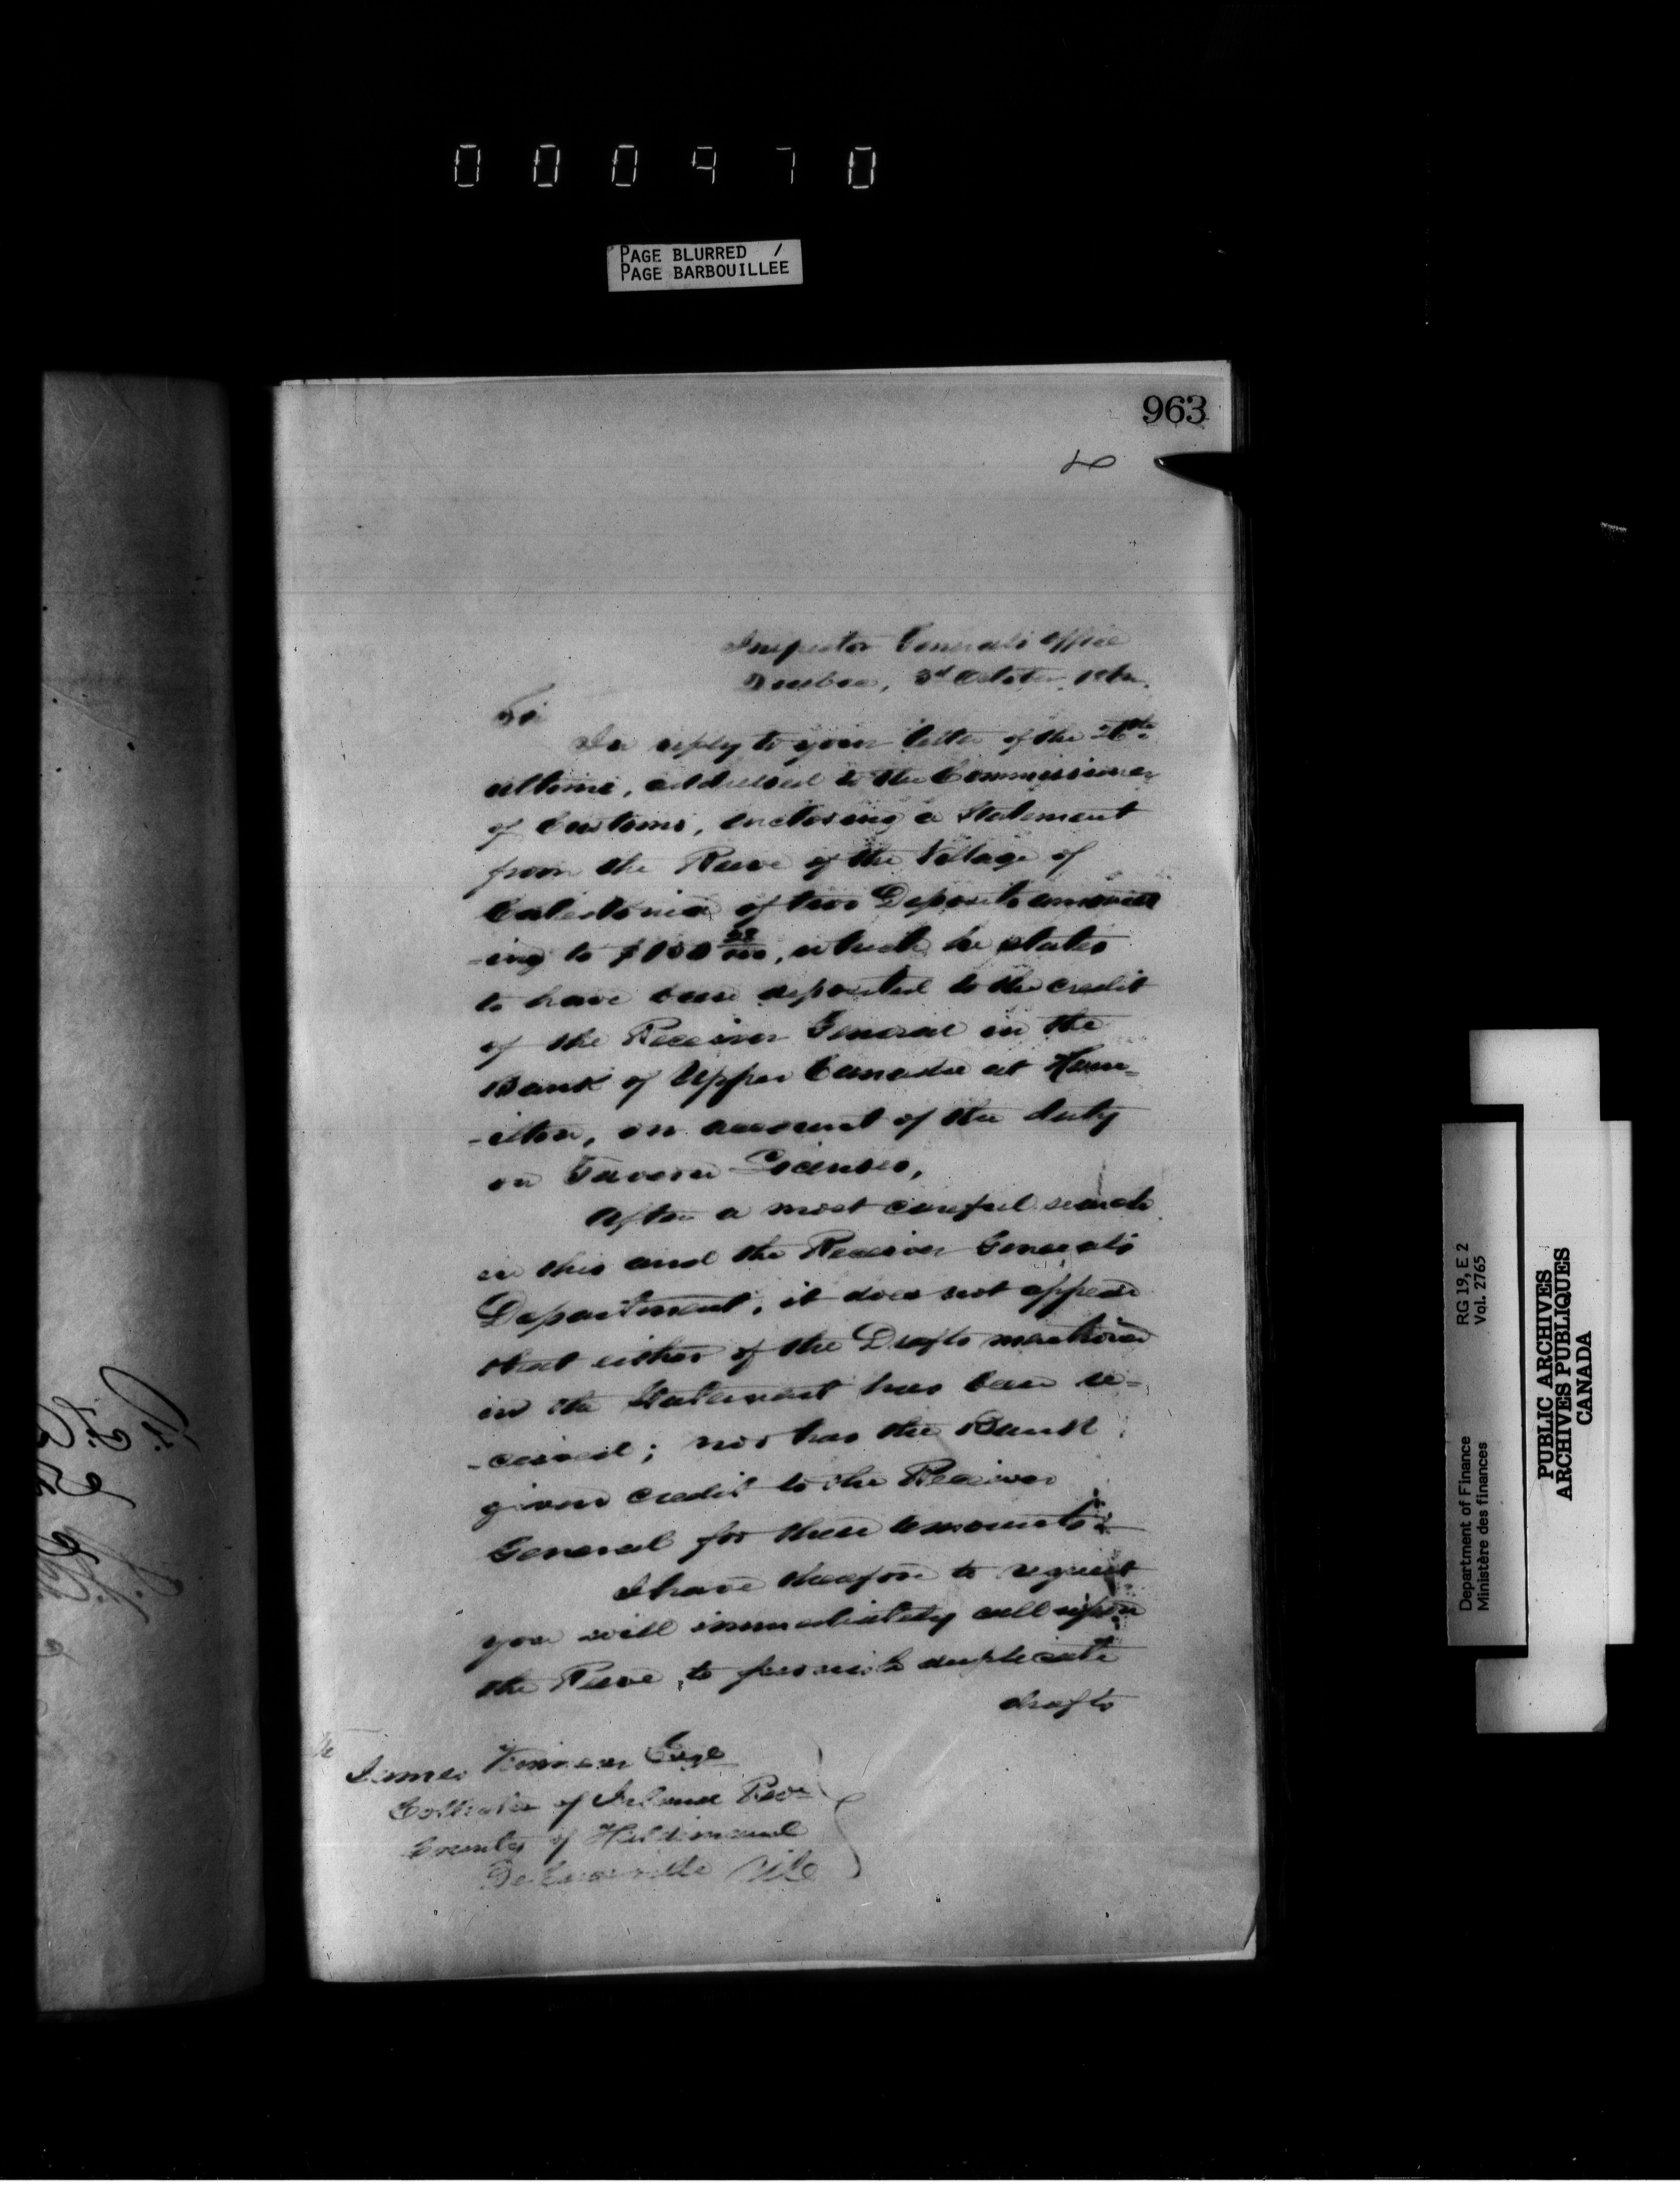 000970
PAGE BLURRED /
PAGE BARBOUILLEE
963
Inspector General's Office
Quebec, 3d October
Sir
In reply to your letter of the
ultimo, addressed to the Commissioner
of Customs, enclosing a Statement
from the Reeve of the Village of
Caledonia of two Deposits amount
-ing to $100, which he states
to have been deposited to the credit
of the Receiver General in the
Bank of Upper Canada at Ham=
-ilton, on account of the duty
on Tavern Licenses,
After a most careful search
in this and the Receiver General's
Department, it does not appear
that either of the Drafts mentioned
in the Statement has been re=
-ceived; nor has the Bank
given credit to the Receiver
General for these amounts.
I have therefore to request
you will immediately call upon
the Reeve, to furnish duplicate
drafts
James Esqe
Collector of Inland Reve
County of Haldimand
RG 19, E 2
Vol. 2765
Department of Finance
Ministère des finances
PUBLIC ARCHIVES
ARCHIVES PUBLIQUES
CANADA